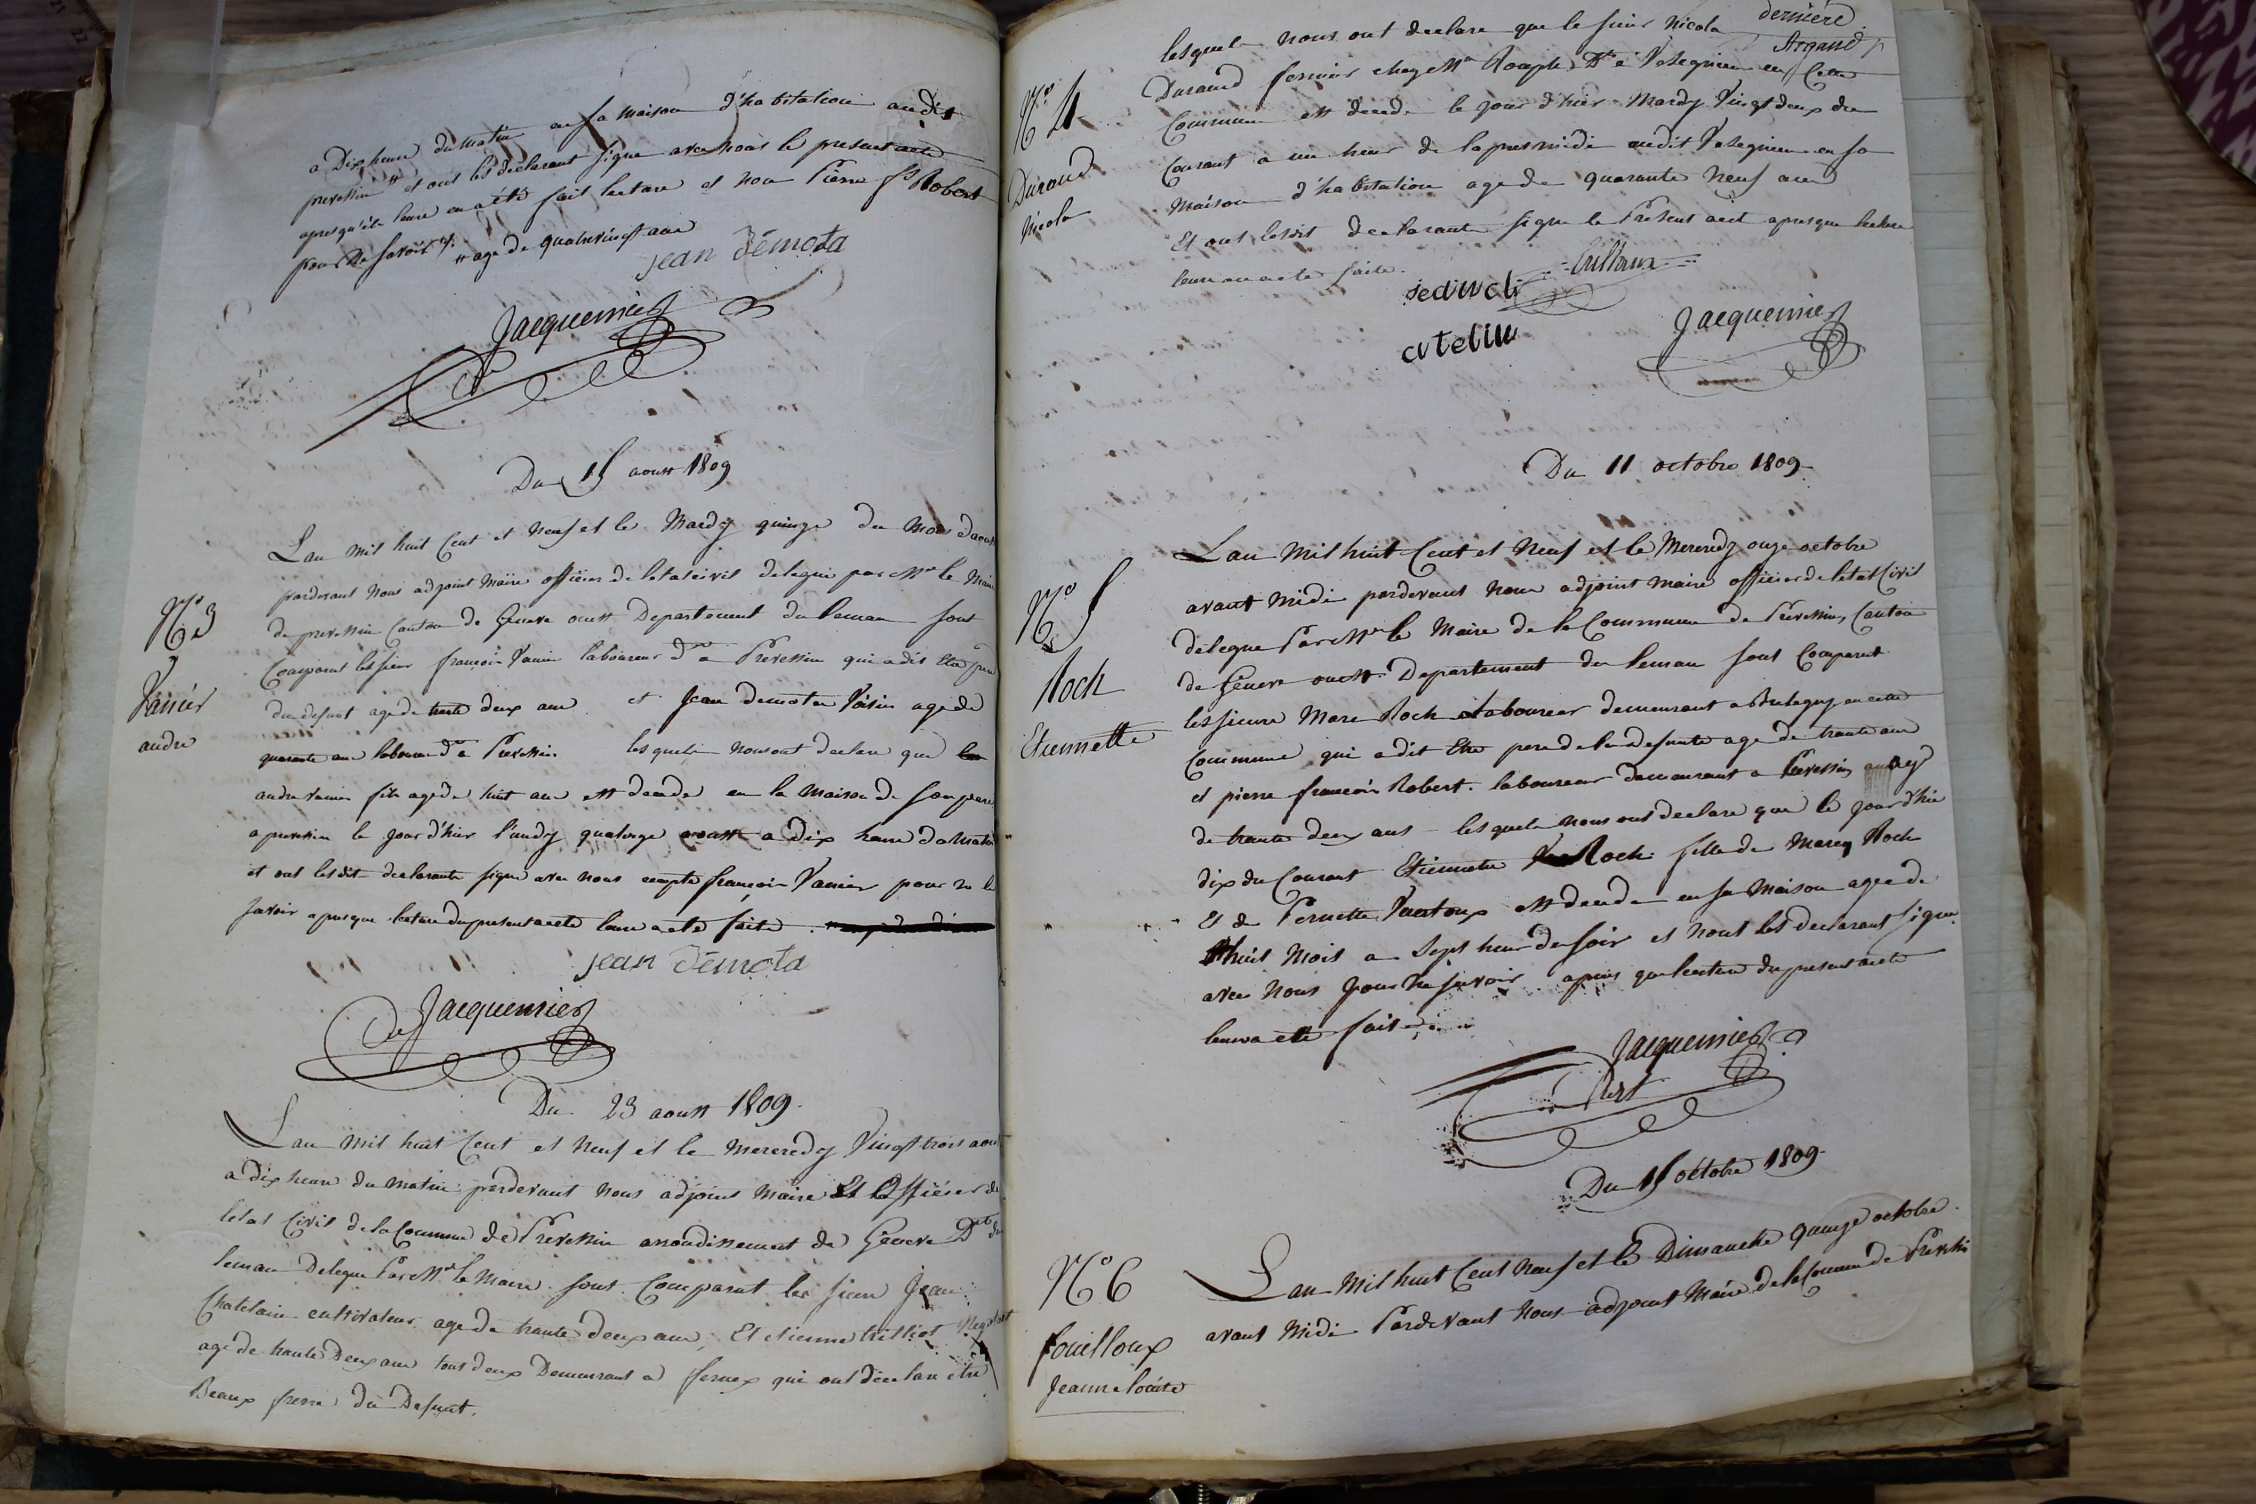 a Dix heure du matin en sa maison d'habitation audit
prevessin # et ont les declarant signe avec nous le present acte
apres qu'il leure en a été fait lecture et non Pierre fs Robert
pour ne savoir #. # age de quatrevingt ans
jean démota
Jacquemier
Du 15 aoust 1809
Lan mil huit Cent et neuf et le Mardy quinze du mois daoust
pardevant nous adjoint maire officier de letat civil delegué par Mr le Maire
de prevessin Canton de Geneve ouest Departement du Leman sont
Comparut les sieur francois Vanier laboureur dt a Prevessin qui a dit Etre pere
du defunt age de trente deux ans et Jean demota Voisin age de
quarante ans laboureur dt a Prevessin lesquels nous ont declare que
andre vanier fils age de huit ans est decede en la maison de son pere
a prevessin le jour d'hier lundy quatorze aoust a dix heure du matin
et ont lesdit declarants signe avec nous excepte francois Vanier pour ne le
savoir apres que lecture du present acte leure a ete faite.
jean démota
Jacquemier
Du 23 aoust 1809.
Lan mil huit Cent et neuf et le mercredy Vingt trois aoust
a dix heure du matin pardevant nous adjoint maire Et Officier de
letat Civil de la Commune de Prevessin arrondissement de Geneve Dt du
leman Delegue Par Mr le Maire sont Comparut les sieur Jean
Chatelain cultivateur age de trante deux ans, Et etienne trilliot Negotiant
age de trante Deux ans tous deux Demeurant a fernex qui ont declare etre
Beaux frerre du Defunt.
N° 3
Vanier
andre
lesquels nous ont declare que le sieur Nicola derniere
Durand fermier chez Mr Dt a Vesegnin en Cette Argand
Commune est decede le jour d'hier Mardy Vingt deux du
Courant a une heure de lapresmidi audit Vesegnin en sa
maison d'habitation age de quarante neuf ans
Et ont lesdit declarants signe le Present acte apres que lecture
leure en a ete faite.
Jacquemier
N° 4
Durand
Nicola
Du 11 octobre 1809.
Lan mil huit Cent et Neuf et le Mercredy onze octobre
avant midi pardevant nous adjoint maire officier de letat Civil
delegue Par Mr le Maire de la Commune de Prevessin, Canton
de Geneve ouest Departement du leman sont Comparut
les sieurs Marc Roch laboureur demeurant a Bretegny en cette
Commune qui a dit Etre pere de la defunte age de trante ans
et pierre francois Robert laboureur demeurant a Prevessin agé
de trante deux ans lesquels nous ont declare que le jour d'hier
dix du Courant Etiennette Roch fille de Marcq Roch
Et de Pernette est decede en sa maison agee de
huit mois a Sept heure du soir et nont les declarant signe
avec nous pour ne savoir apres que lecture du present acte
leur a ete faite.
Jacquemier
N° 5
Roch
Etiennette
Du 15 octobre 1809.
Lan mil huit Cent neuf et le Dimanche quinze octobre
avant midi Pardevant nous adjoint Maire de la Commune de Prevessin
N° 6
fouilloux
Jeanne louise